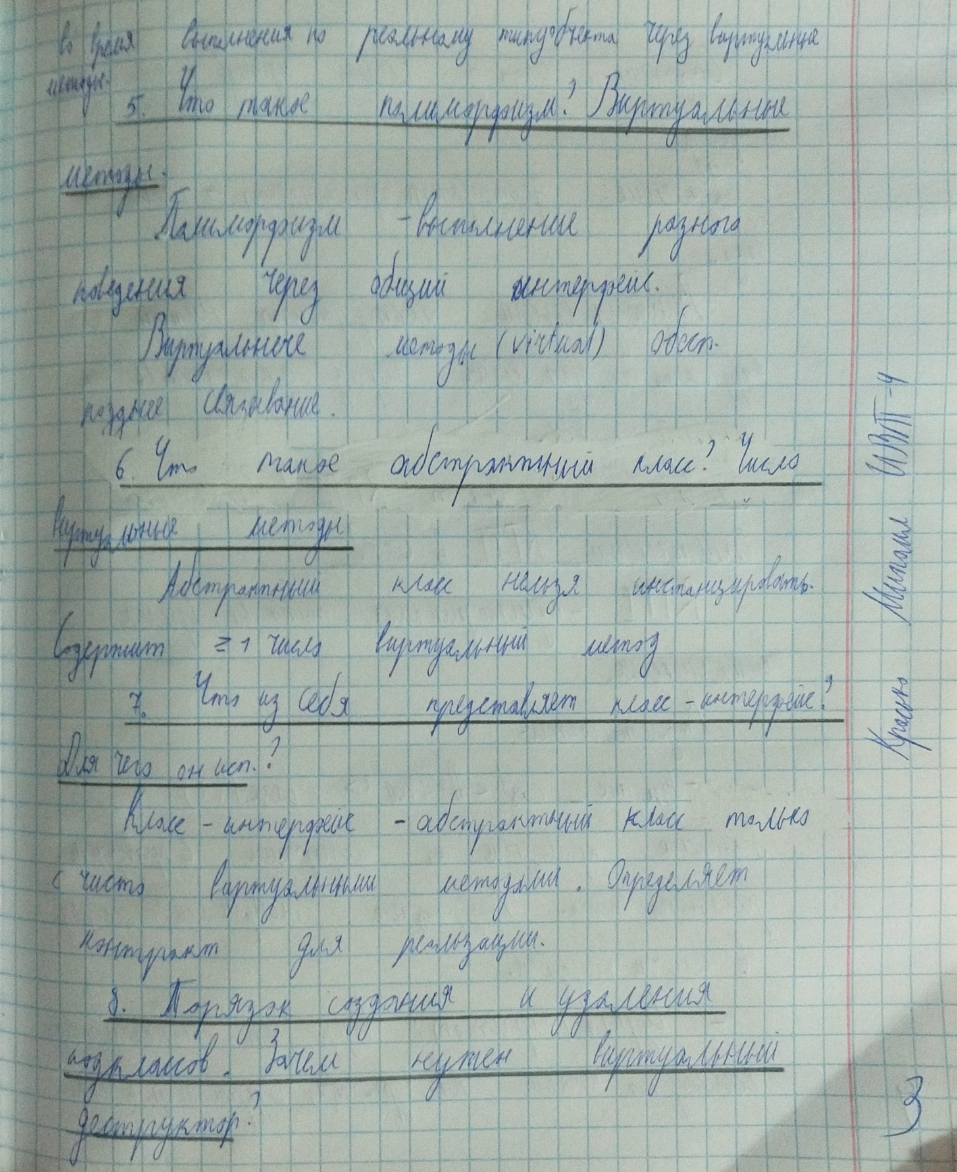 во время выполнения по реальному типу объекта через виртуальные
методы.
5. Что такое полиморфизм? Виртуальные
методы.
Полиморфизм - выполнение разного
поведения через общий интерфейс.
Виртуальные методы (virtual) обесп.
позднее связывание.
6. Что такое абстрактный класс? Чисто
виртуальные методы
Абстрактный класс нельзя инстанцировать.
Содержит ≥ 1 чисто виртуальный метод
7. Что из себя представляет класс - интерфейс?
Для чего он исп.?
Класс - интерфейс - абстрактный класс только
с чисто виртуальными методами. Определяет
контракт для реализации.
8. Порядок создания и удаления
подклассов. Зачем нужен виртуальный
деструктор?
Михаил
3